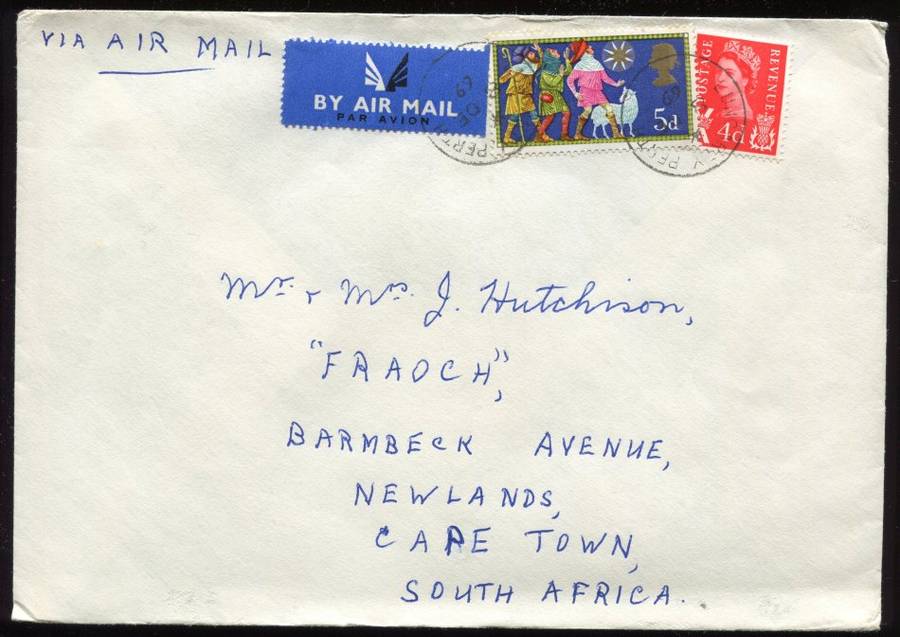 VIA AIR MAIL
BY AIR MAIL
PAR AVION
5d
POSTAGE
REVENUE
4d
PERTH
69
Mr. & Mrs. J. Hutchison,
"FRAOCH",
BARMBECK AVENUE,
NEWLANDS,
CAPE TOWN,
SOUTH AFRICA.